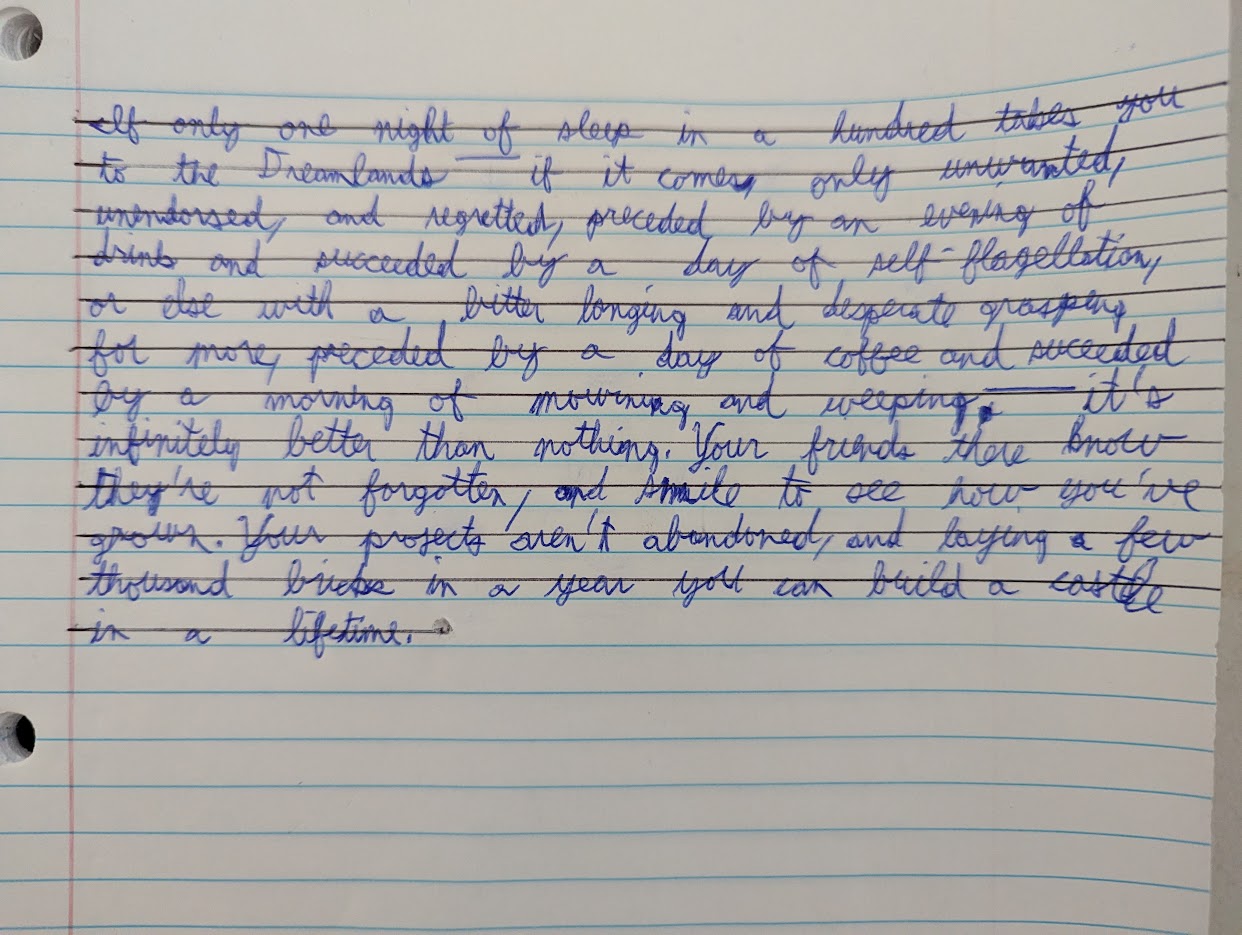 If only one night of sleep in a hundred takes you
to the Dreamlands — if it comes, only unwanted,
unendorsed, and regretted, preceded by an evening of
drink and succeeded by a day of self-flagellation,
or else with a bitter longing and desperate grasping
for more, preceded by a day of coffee and succeeded
by a morning of mourning and weeping, — it's
infinitely better than nothing. Your friends there know
they're not forgotten, and smile to see how you've
grown. Your projects aren't abandoned, and laying a few
thousand bricks in a year you can build a castle
in a lifetime.